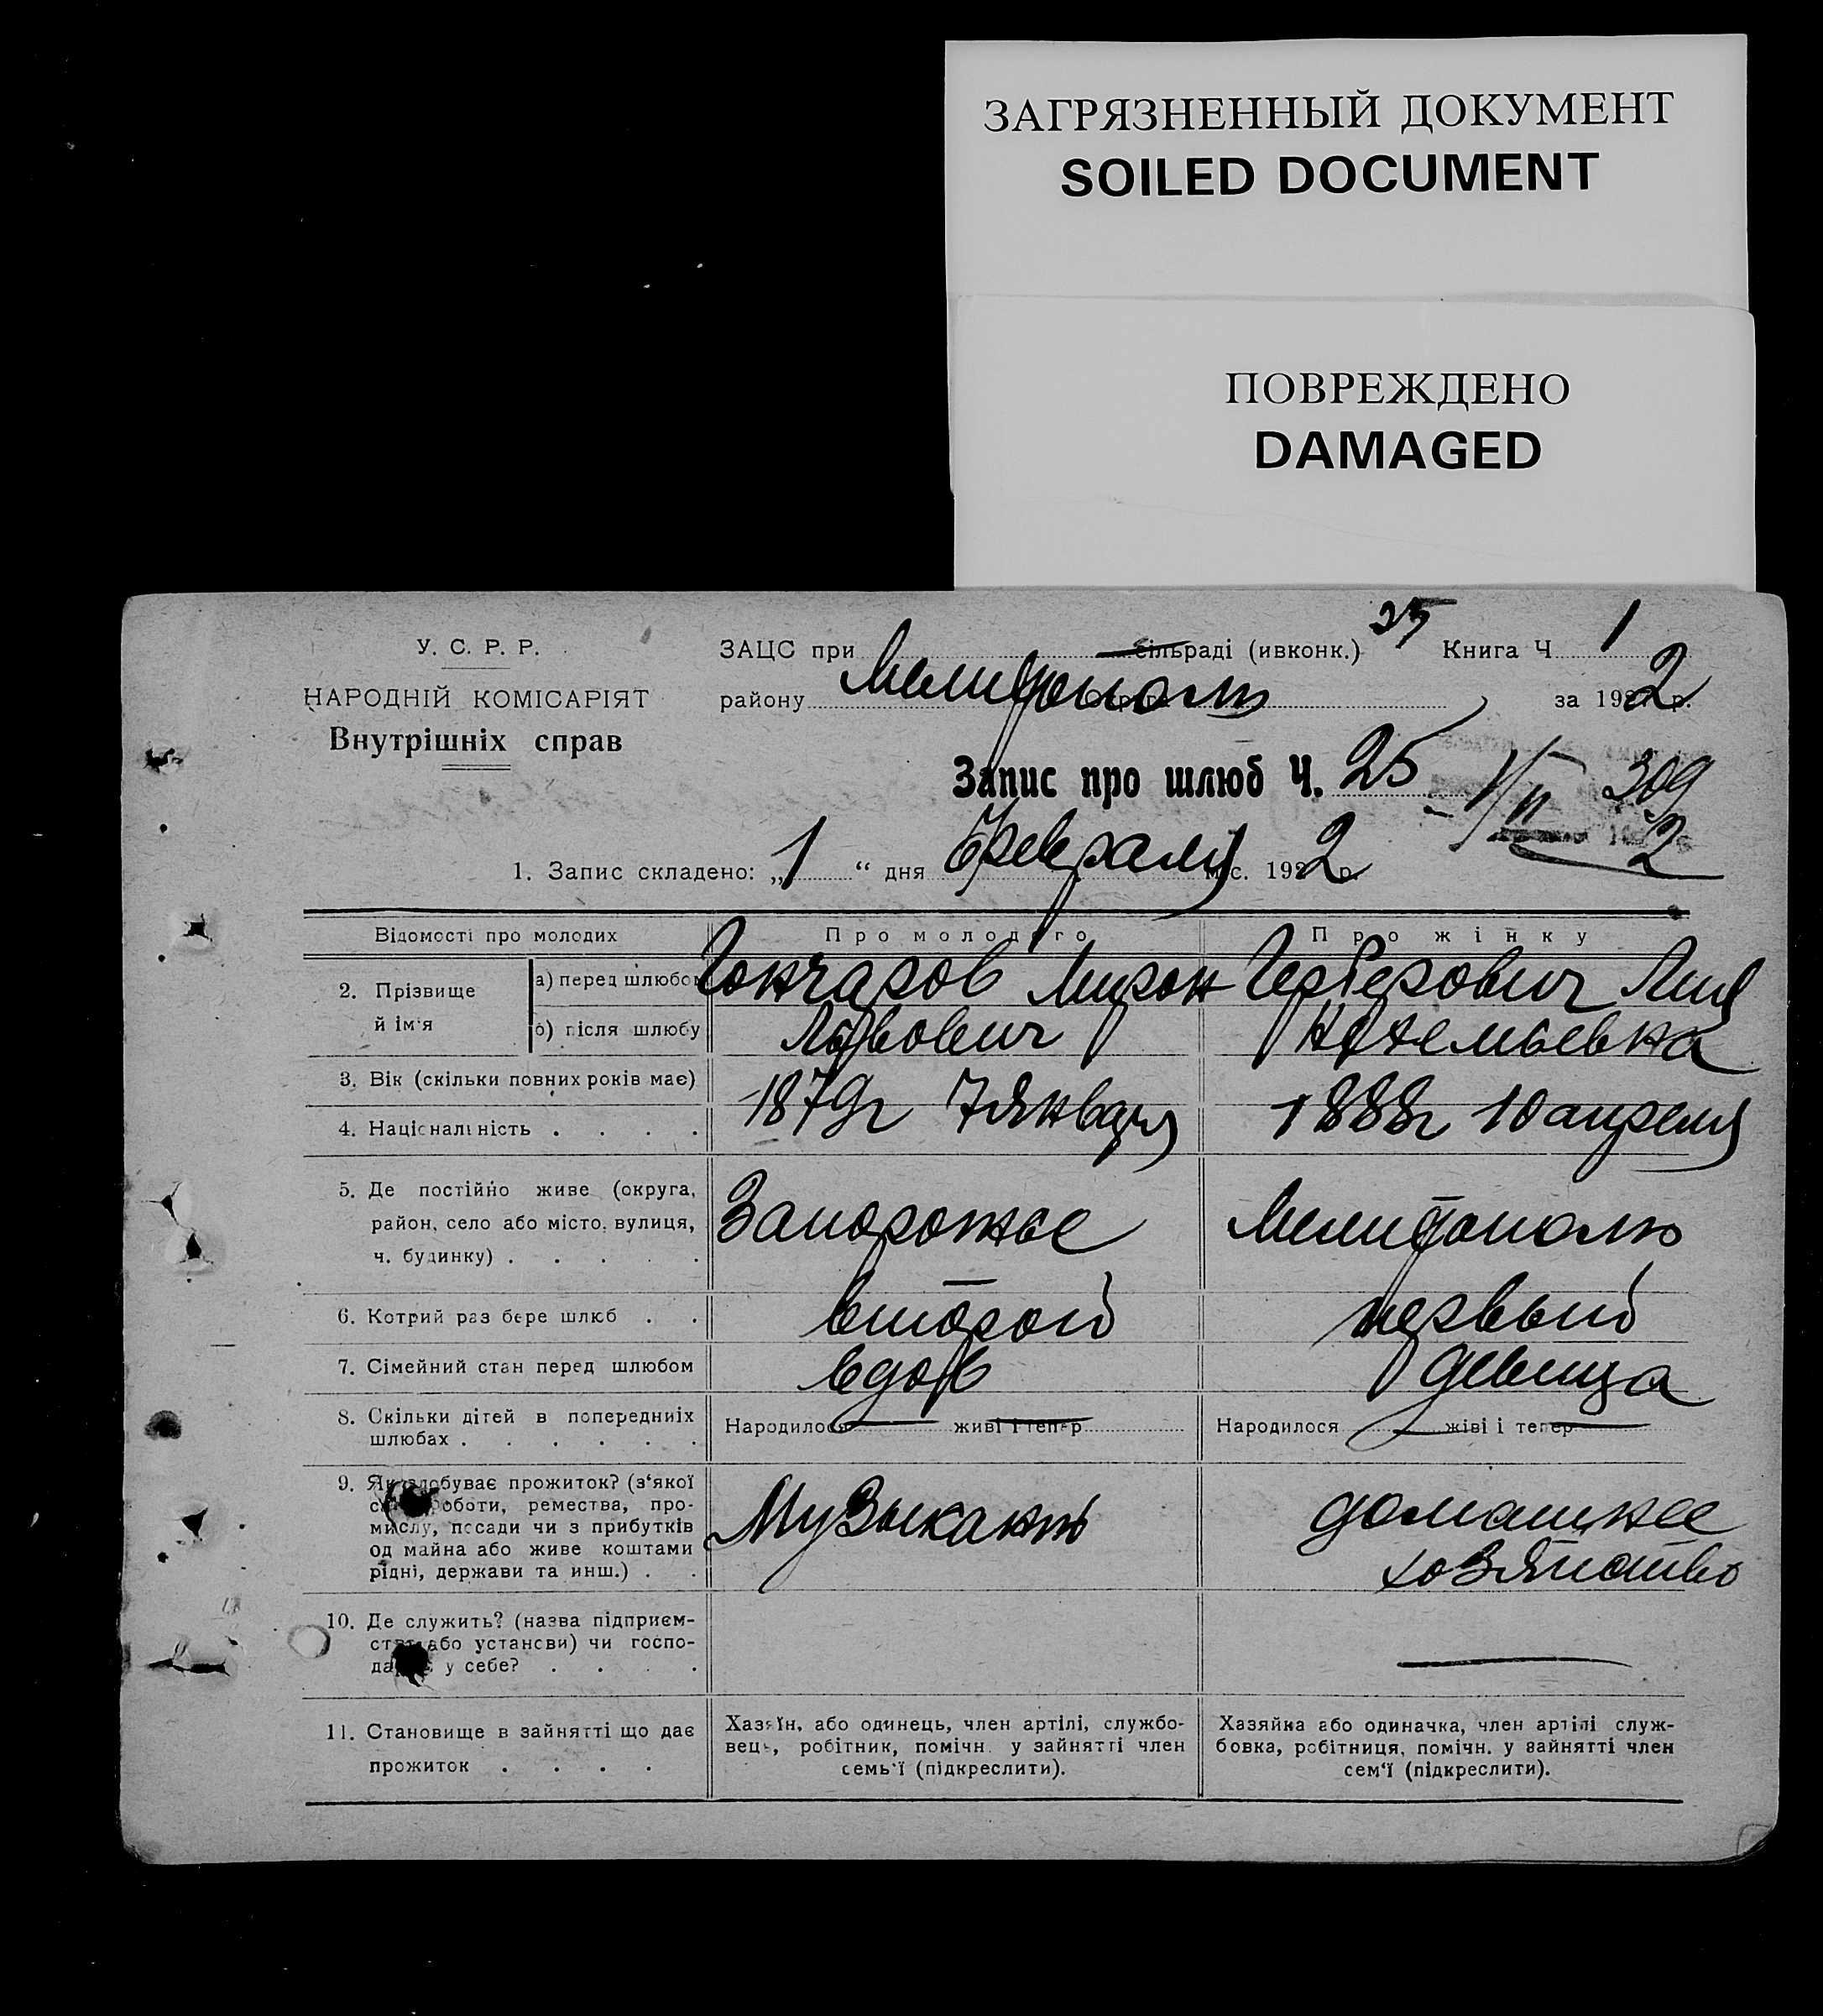 ЗАГРЯЗНЕННЫЙ ДОКУМЕНТ
SOILED DOCUMENT
ПОВРЕЖДЕНО
DAMAGED
У. С. Р. Р.
НАРОДНІЙ КОМІСАРІЯТ
Внутрішніх справ
ЗАЦС при сільраді (ивконк.) 25 Книга Ч 1
району Мелитополь за 1922 р.
Запис про шлюб Ч. 25 1/II 309
2
1. Запис складено: „1“ дня Февраля міс. 1922 р.
Відомості про молодих Про молодого Про жінку
2. Прізвище й ім'я
а) перед шлюбом Гончаров Мирон Герберович Лия
б) після шлюбу Львович
3. Вік (скільки повних років має) 1879г 7 Января 1888г 10 апреля
4. Національність . . . .
5. Де постійно живе (округа,
район, село або місто, вулиця,
ч. будинку) . . . . .
Запорожье Мелитополь
6. Котрий раз бере шлюб . . второй первый
7. Сімейний стан перед шлюбом вдов девица
8. Скільки дітей в попередниіх
шлюбах . . . . . .
Народилося живі і тепер Народилося жіві і тепер
9. Як здобуває прожиток? (з'якої
роботи, ремества, про-
мислу, посади чи з прибутків
од майна або живе коштами
рідні, держави та инш.) . .
Музыкантъ домашнее
хозяйство
10. Де служить? (назва підприєм-
ства або установи) чи госпо-
дарює у себе? . . . .
11. Становище в зайнятті що дає
прожиток . . . .
Хазяїн, або одинець, член артілі, службо-
вець, робітник, помічн. у зайнятті член
семь'ї (підкреслити).
Хазяйка або одиначка, член артілі служ-
бовка, робітниця, помічн. у зайнятті член
сем'ї (підкреслити).